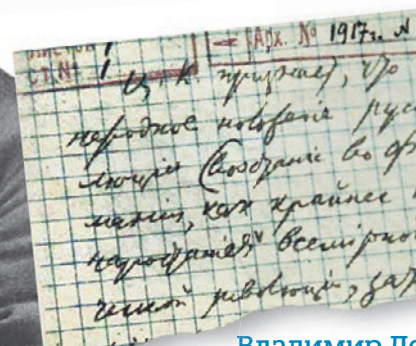 СТ. № 1 Арх. № 1917г. №
Ц. К. признает, что
народное положение рус
люции (восстание во ф
мании, как крайнее
нарастания всемирно
ческой революции, за
Владимир Ле